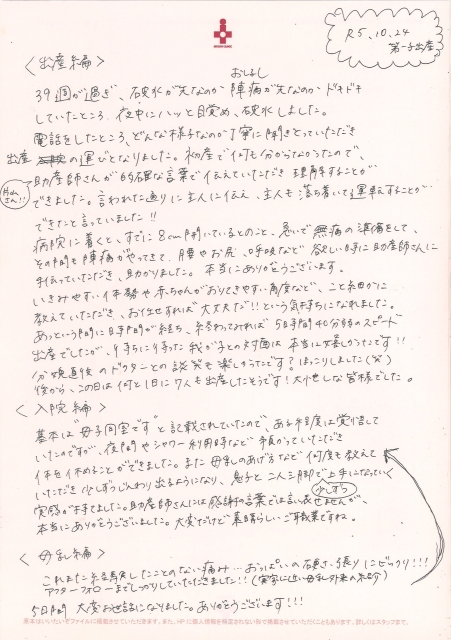 R5.10.24
第一子出産
<出産編>
39週が過ぎ、破水が先なのか陣痛が先なのかドキドキ
おしるし
していたところ、夜中にハッと目覚め、破水しました。
電話をしたところ、どんな様子なのか丁寧に聞きとっていただき
出産の運びとなりました。初産で何も分からなかったので、
助産師さんが的確な言葉で伝えていただき理解することが
さん!!
できました。言われた通りに主人に伝え、主人も落ち着いて運転することが
できたと言っていました!!
病院に着くと、すでに8cm開いているとのこと、急いで無痛の準備をして、
その間も陣痛がやってきて、腰やお尻、呼吸など欲しい時に助産師さんに
手伝っていただき、助かりました。本当にありがとうございます。
いきみやすい体勢や赤ちゃんがおりてきやすい角度など、こと細かに
教えていただき、お任せすれば大丈夫だ!!という気持ちになれました。
あっという間に時間が経ち、終わってみれば5時間40分のスピード
出産でしたが、待ちに待った我が子との対面は本当に嬉しかったです!!
分娩直後のドクターとの談笑も楽しかったです? ほっこりしました(笑)
後から、この日は何と1日に7人も出産したそうです! 大忙しな皆様でした。
<入院編>
基本は"母子同室です"と記載されていたので、ある程度は覚悟して
いたのですが、夜間やシャワー利用時など預かっていただき
体を休めることができました。また母乳のあげ方など何度も教えて
いただき少しずつじんわり出るようになり、息子と二人三脚で上手になっていく
少しずつ
実感が持てました。助産師さんには感謝の言葉では言い表せませんが、
本当にありがとうございました。大変だけど素晴らしいご職業ですね。
<母乳編>
これまた経験したことのない痛み…おっぱいの硬さ・張りにビックリ!!!
アフターフォローまでしっかりしていただきました!!(実家に近い母乳外来の紹介)
5日間大変お世話になりました。ありがとうございます!!!
原本はいいたいぞファイルに掲載させていただきます。また、HPに個人情報を特定されない形で掲載させていただくこともあります。詳しくはスタッフまで。